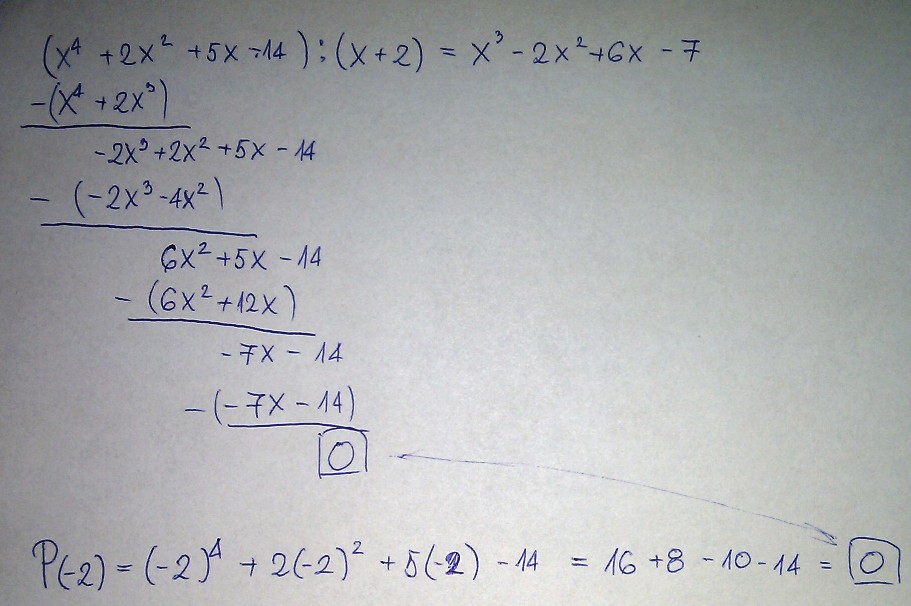 (x⁴ +2x² +5x -14) : (x+2) = x³ - 2x² +6x - 7
-(x⁴ +2x³)
-2x³ +2x² +5x - 14
- (-2x³ -4x²)
6x² +5x - 14
- (6x² +12x)
-7x - 14
-(-7x - 14)
0
P(-2) = (-2)⁴ + 2(-2)² + 5(-2) - 14 = 16 +8 -10 - 14 = 0